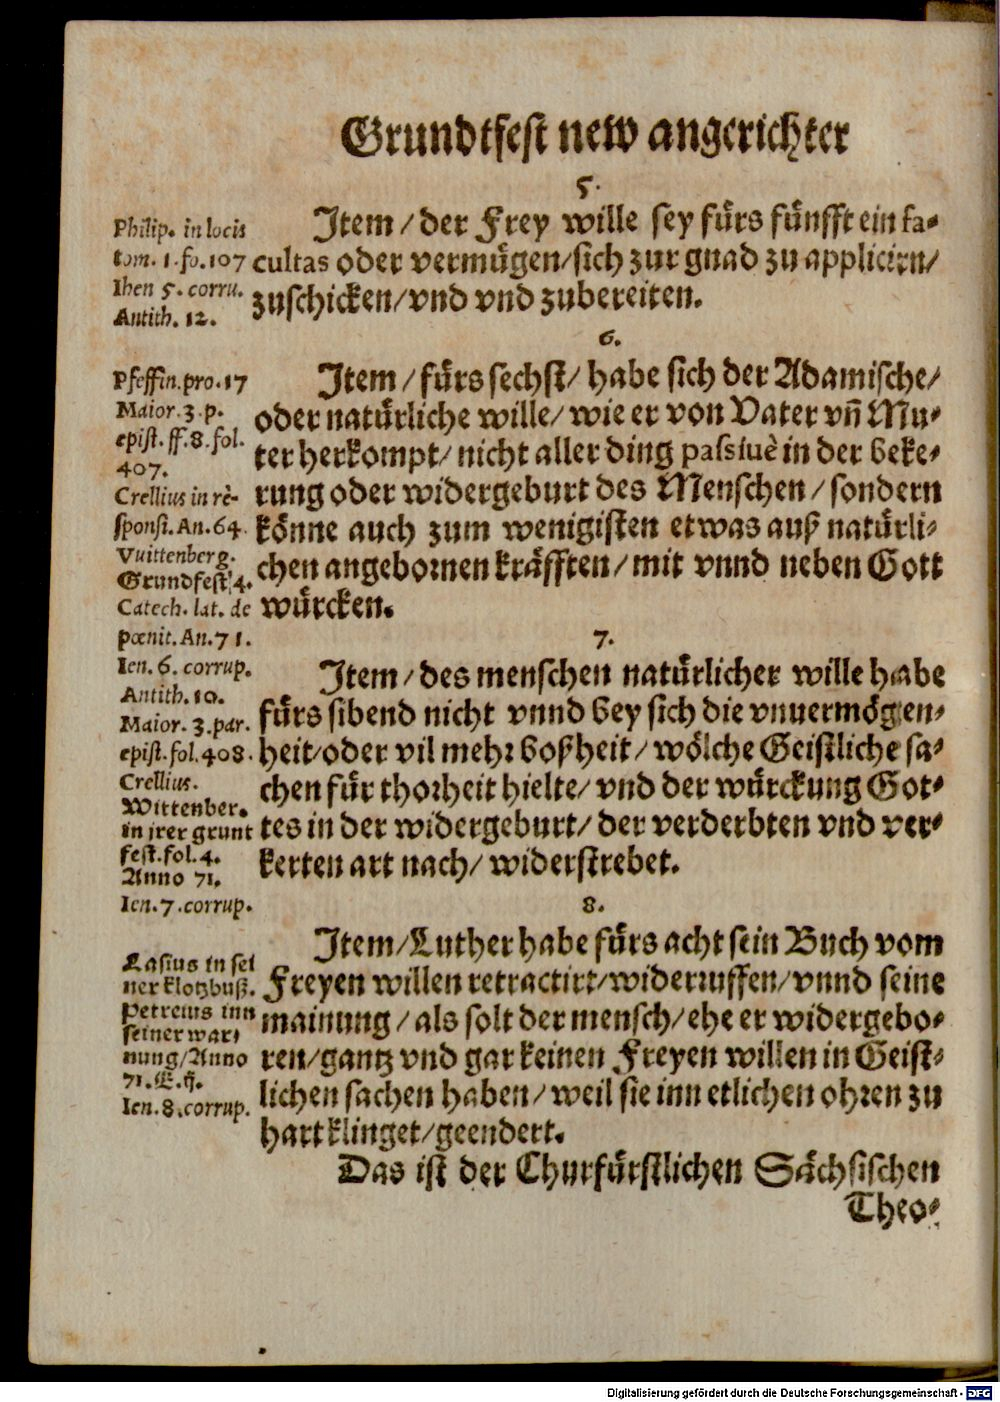 Grundtfest new angerichter
5.
Item/der Frey wille sey fürs fünfft ein fa-
cultas oder vermügen/sich zur gnad zu applicirn/
zuschicken/vnd vnd zubereiten.
Philip. in locis
tom. 1. fo. 107
Ihen 5. corru.
Antith. 12.
6.
Item/fürs sechst/habe sich der Adamische/
oder natürliche wille/wie er von Vater vñ Mu-
ter herkompt/nicht aller ding passiuè in der beke-
rung oder widergeburt des Menschen/sondern
könne auch zum wenigisten etwas auß natürli-
chen angebornen kräfften/mit vnnd neben Gott
würcken.
Pfeffin. pro. 17
Maior. 3. p.
epist. ff. 8. fol.
407.
Crellius in rè-
sponsi. An. 64.
Vuittenberg.
Grundfest 4.
Catech. lat. de
pœnit. An. 71.
Ien. 6. corrup.
Antith. 10.
7.
Item/des menschen natürlicher wille habe
fürs sibend nicht vnnd bey sich die vnuermögen-
heit/oder vil mehr boßheit/wölche Geistliche sa-
chen für thorheit hielte/vnd der würckung Got-
tes in der widergeburt/der verderbten vnd ver-
kerten art nach/widerstrebet.
Maior. 3. par.
epist. fol. 408.
Crellius.
Wittenber.
in jrer grunt
fest. fol. 4.
Anno 71.
Ien. 7. corrup.
8.
Item/Luther habe fürs acht sein Buch vom
Freyen willen retractirt/widerruffen/vnnd seine
mainung/als solt der mensch/ehe er widergebo-
ren/gantz vnd gar keinen Freyen willen in Geist-
lichen sachen haben/weil sie inn etlichen ohren zu
hart klinget/geendert.
Lasius in sei
ner klotzbuß.
Petreius inn
seiner war-
nung/Anno
71. E. ij.
Ien. 8. corrup.
Das ist der Churfürstlichen Sächsischen
Theo-
Digitalisierung gefördert durch die Deutsche Forschungsgemeinschaft - DFG